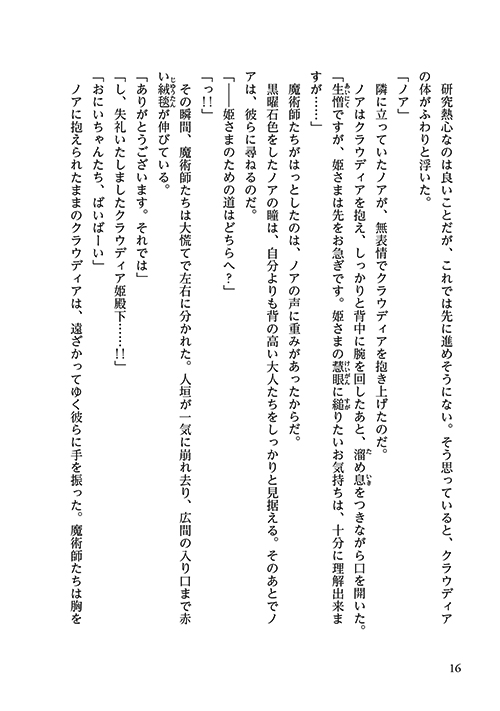 研究熱心なのは良いことだが、これでは先に進めそうにない。そう思っていると、クラウディア
の体がふわりと浮いた。
「ノア」
隣に立っていたノアが、無表情でクラウディアを抱き上げたのだ。
ノアはクラウディアを抱え、しっかりと背中に腕を回したあと、溜め息をつきながら口を開いた。
「生憎ですが、姫さまは先をお急ぎです。姫さまの慧眼に縋りたいお気持ちは、十分に理解出来ま
すが……」
魔術師たちがはっとしたのは、ノアの声に重みがあったからだ。
黒曜石色をしたノアの瞳は、自分よりも背の高い大人たちをしっかりと見据える。そのあとでノ
アは、彼らに尋ねるのだ。
「――姫さまのための道はどちらへ？」
「っ!!」
その瞬間、魔術師たちは大慌てで左右に分かれた。人垣が一気に崩れ去り、広間の入り口まで赤
い絨毯が伸びている。
「ありがとうございます。それでは」
「し、失礼いたしましたクラウディア姫殿下……!!」
「おにいちゃんたち、ばいばーい」
ノアに抱えられたままのクラウディアは、遠ざかってゆく彼らに手を振った。魔術師たちは胸を
16